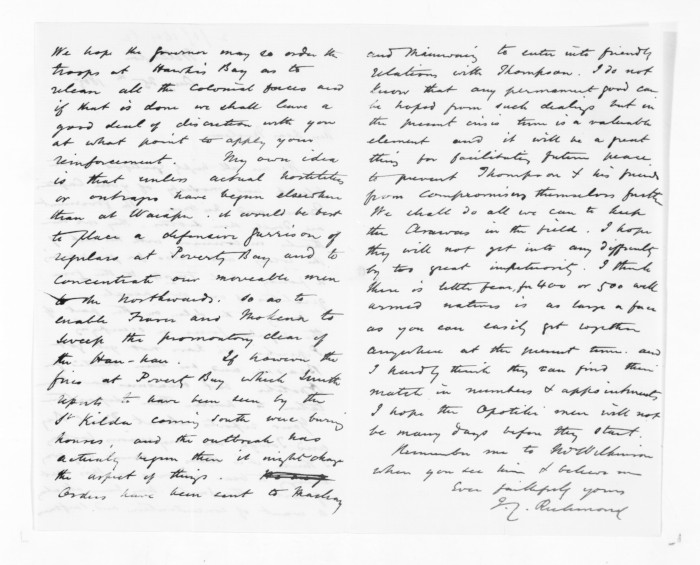 We hope the Governor may so order the
troops at Hawkes Bay as to
release all the Colonial forces and
if that is done we shall leave a
good deal of discretion with you
at what point to apply your
reinforcement. My own idea
is that unless actual hostilities
or outrages have begun elsewhere
than at Waiapu. it would be best
to place a defensive garrison of
regulars at Poverty Bay and to
concentrate our moveable men
to the Northwards. so as to
enable Fraser and Mokena to
sweep the promontory clear of
the Hau-hau. If however the
fires at Poverty Bay which Smith
reports to have been seen by the
St Kilda coming south were burning
houses, and the outbreak has
actually begun then it might change
the aspect of things.
Orders have been sent to Mackay
and Mainwaring to enter into friendly
relations with Thompson. I do not
know that any permanent good can
be hoped from such dealings but in
the present crisis time is a valuable
element and it will be a great
thing for facilitating future peace
to prevent Thompson & his friends
from compromising themselves further
We shall do all we can to keep
the Arawas in the field. I hope
they will not get into any difficulty
by too great impetuosity. I think
there is little fear, for 400 or 500 well
armed natives is as large a force
as you can easily get together
anywhere at the present time. and
I hardly think they can find their
match in numbers & appointments
I hope the Opotiki men will not
be many days before they start.
Remember me to Mr Wilkinson
when you see him & believe me
Ever faithfully yours
J. C. Richmond